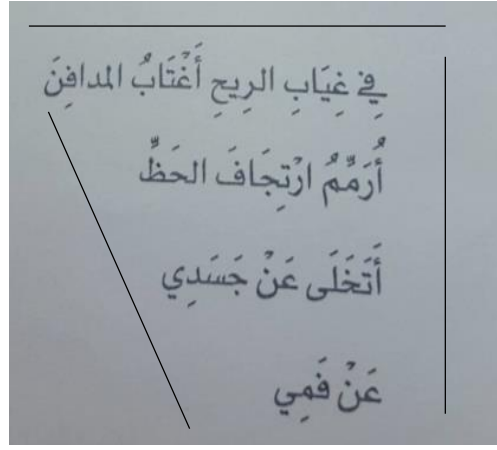 فِي غِيَابِ الرِيحِ أَغْتَابُ المدافِنَ
أُرَمِّمُ ارْتِجَافَ الحَظِّ
أَتَخَلَى عَنْ جَسَدِي
عَنْ فَمِي